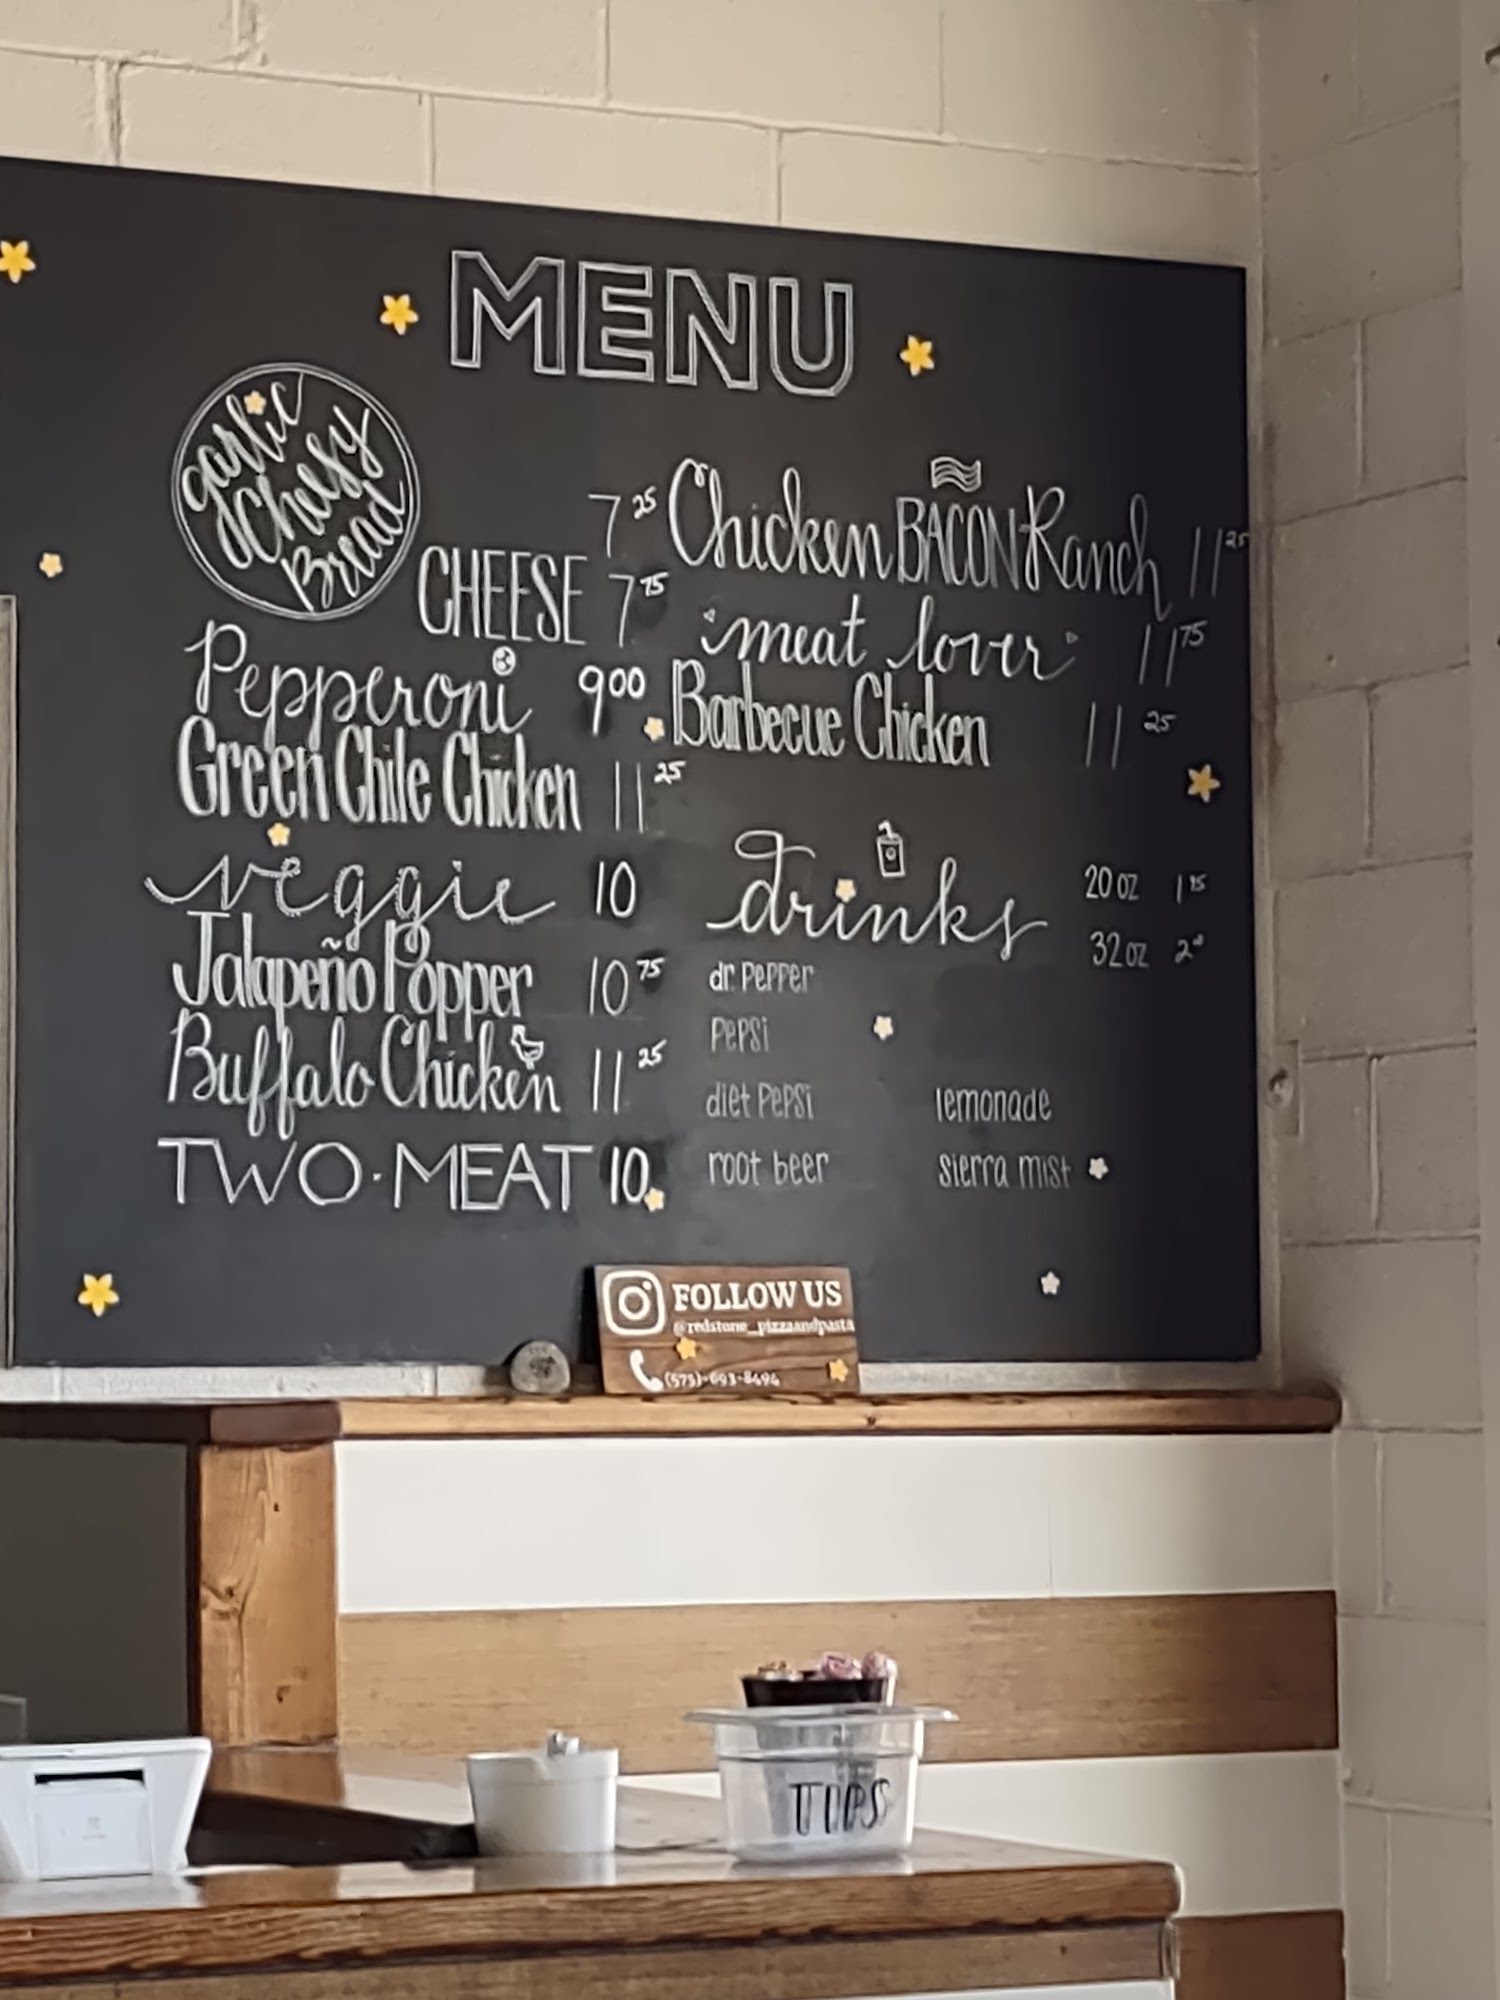 MENU
garlic
Cheesy
Bread
7 25
CHEESE 7 75
Pepperoni 9 00
Green Chile Chicken 11 25
veggie 10
Jalapeño Popper 10 75
Buffalo Chicken 11 25
TWO·MEAT 10
Chicken BACON Ranch 11 25
meat lover 11 75
Barbecue Chicken 11 25
drinks
20 oz
32 oz
dr. Pepper
Pepsi
diet Pepsi lemonade
root beer sierra mist
FOLLOW US
@redstone_pizzaandpasta
(575)-693-8494
TIPS